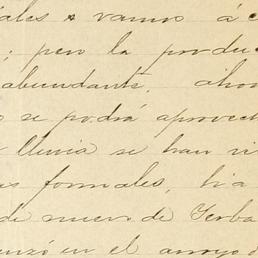 ales vamos á c
; pero la produc
abundante, aho
se podrá aprovech
lluvia se han vi
as formales, ha
de nuevo de Yerba
enzó en el arroyo d